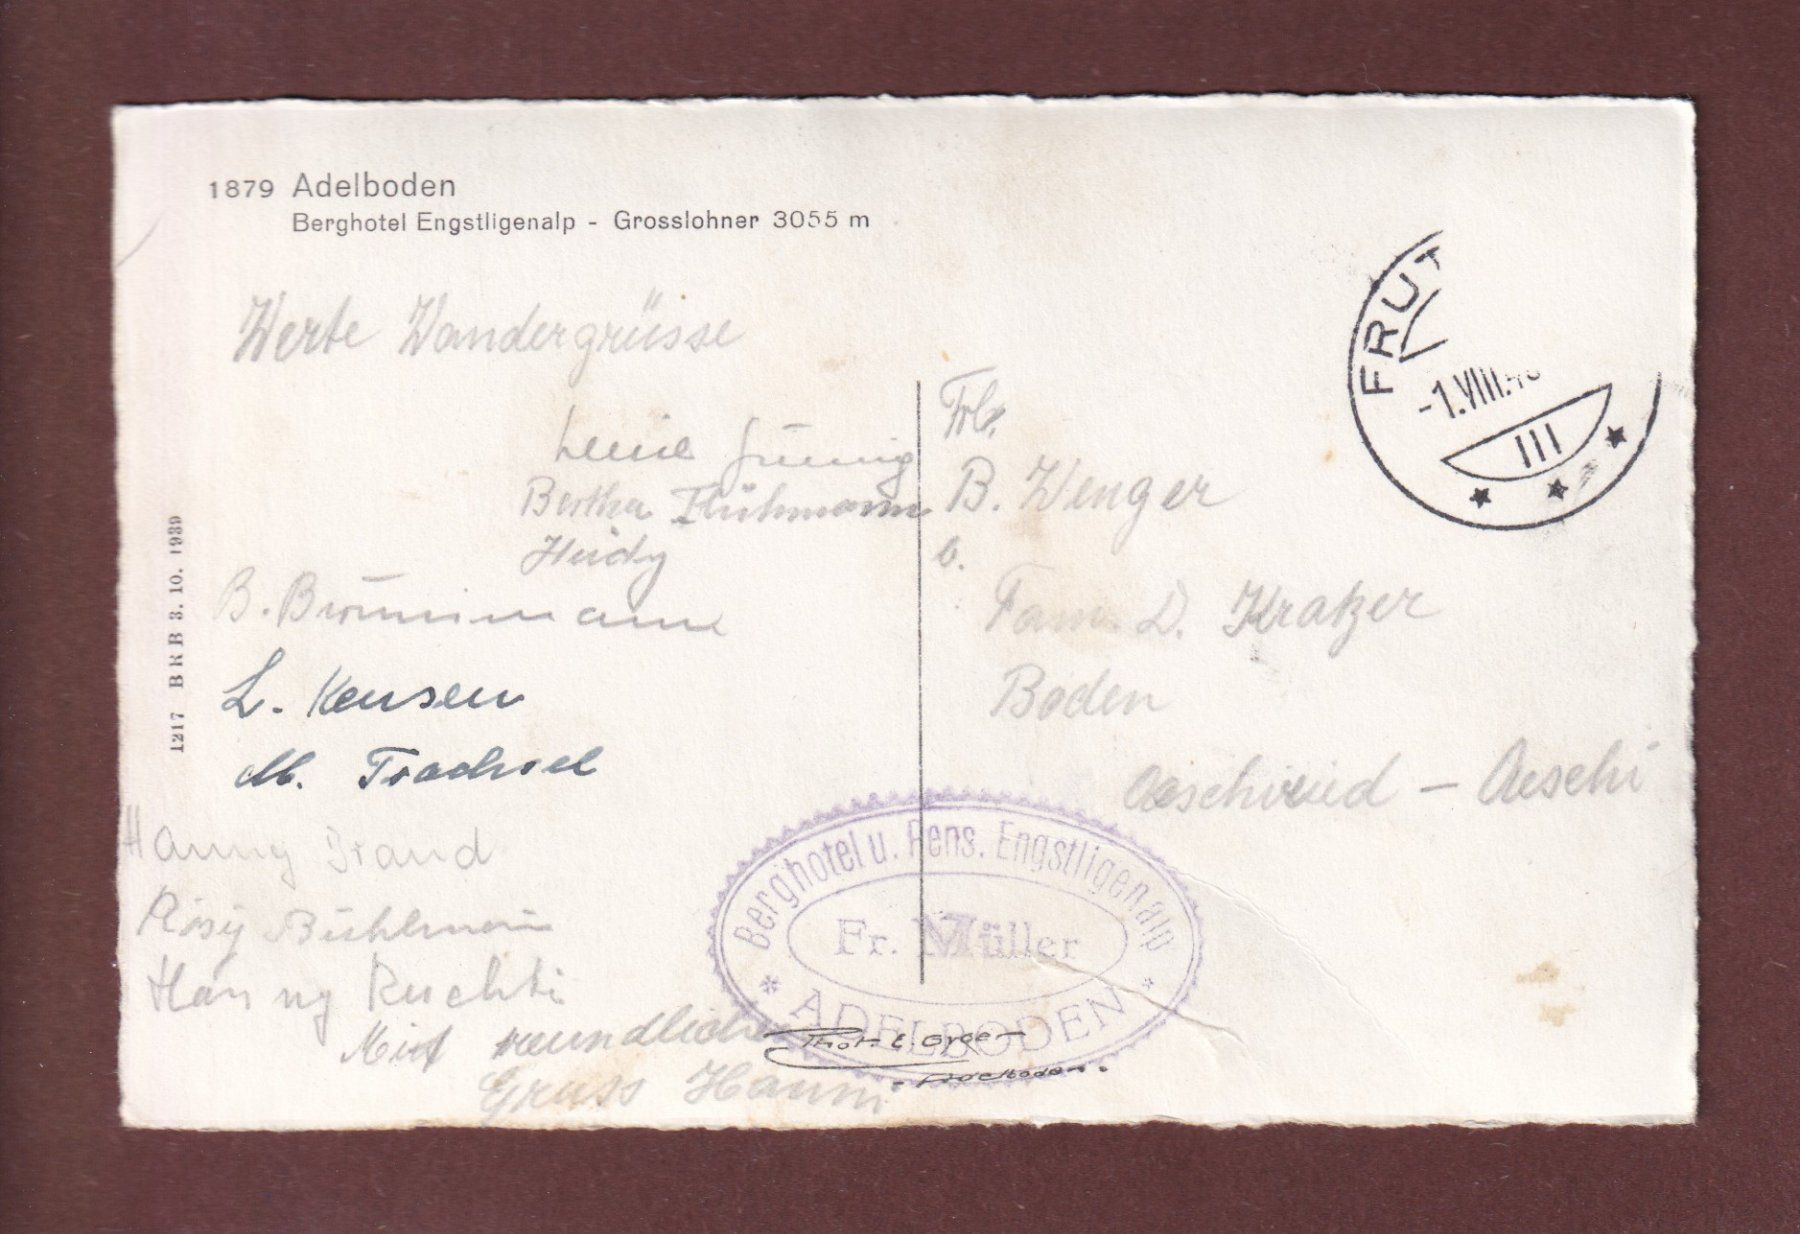 1879 Adelboden
Berghotel Engstligenalp - Grosslohner 3055 m
Werte Wandergrüsse
Bertha Flühmann
Heidy
B. Brönnimann
L. Kensen
M. Trachsel
Hanny Brand
Rösy Bühlmann
Hanny Ruchti
Mit freundlichem
Gruss Hanni
1217 BRB 3. 10. 1939
FRUT
-1.VIII.
III
Frl.
B. Wenger
b.
Fam. D. Kratzer
Boden
Aeschiried - Aeschi
Berghotel u. Pens. Engstligenalp
Fr. Müller
ADELBODEN
Phot. E. Gyger
Adelboden.